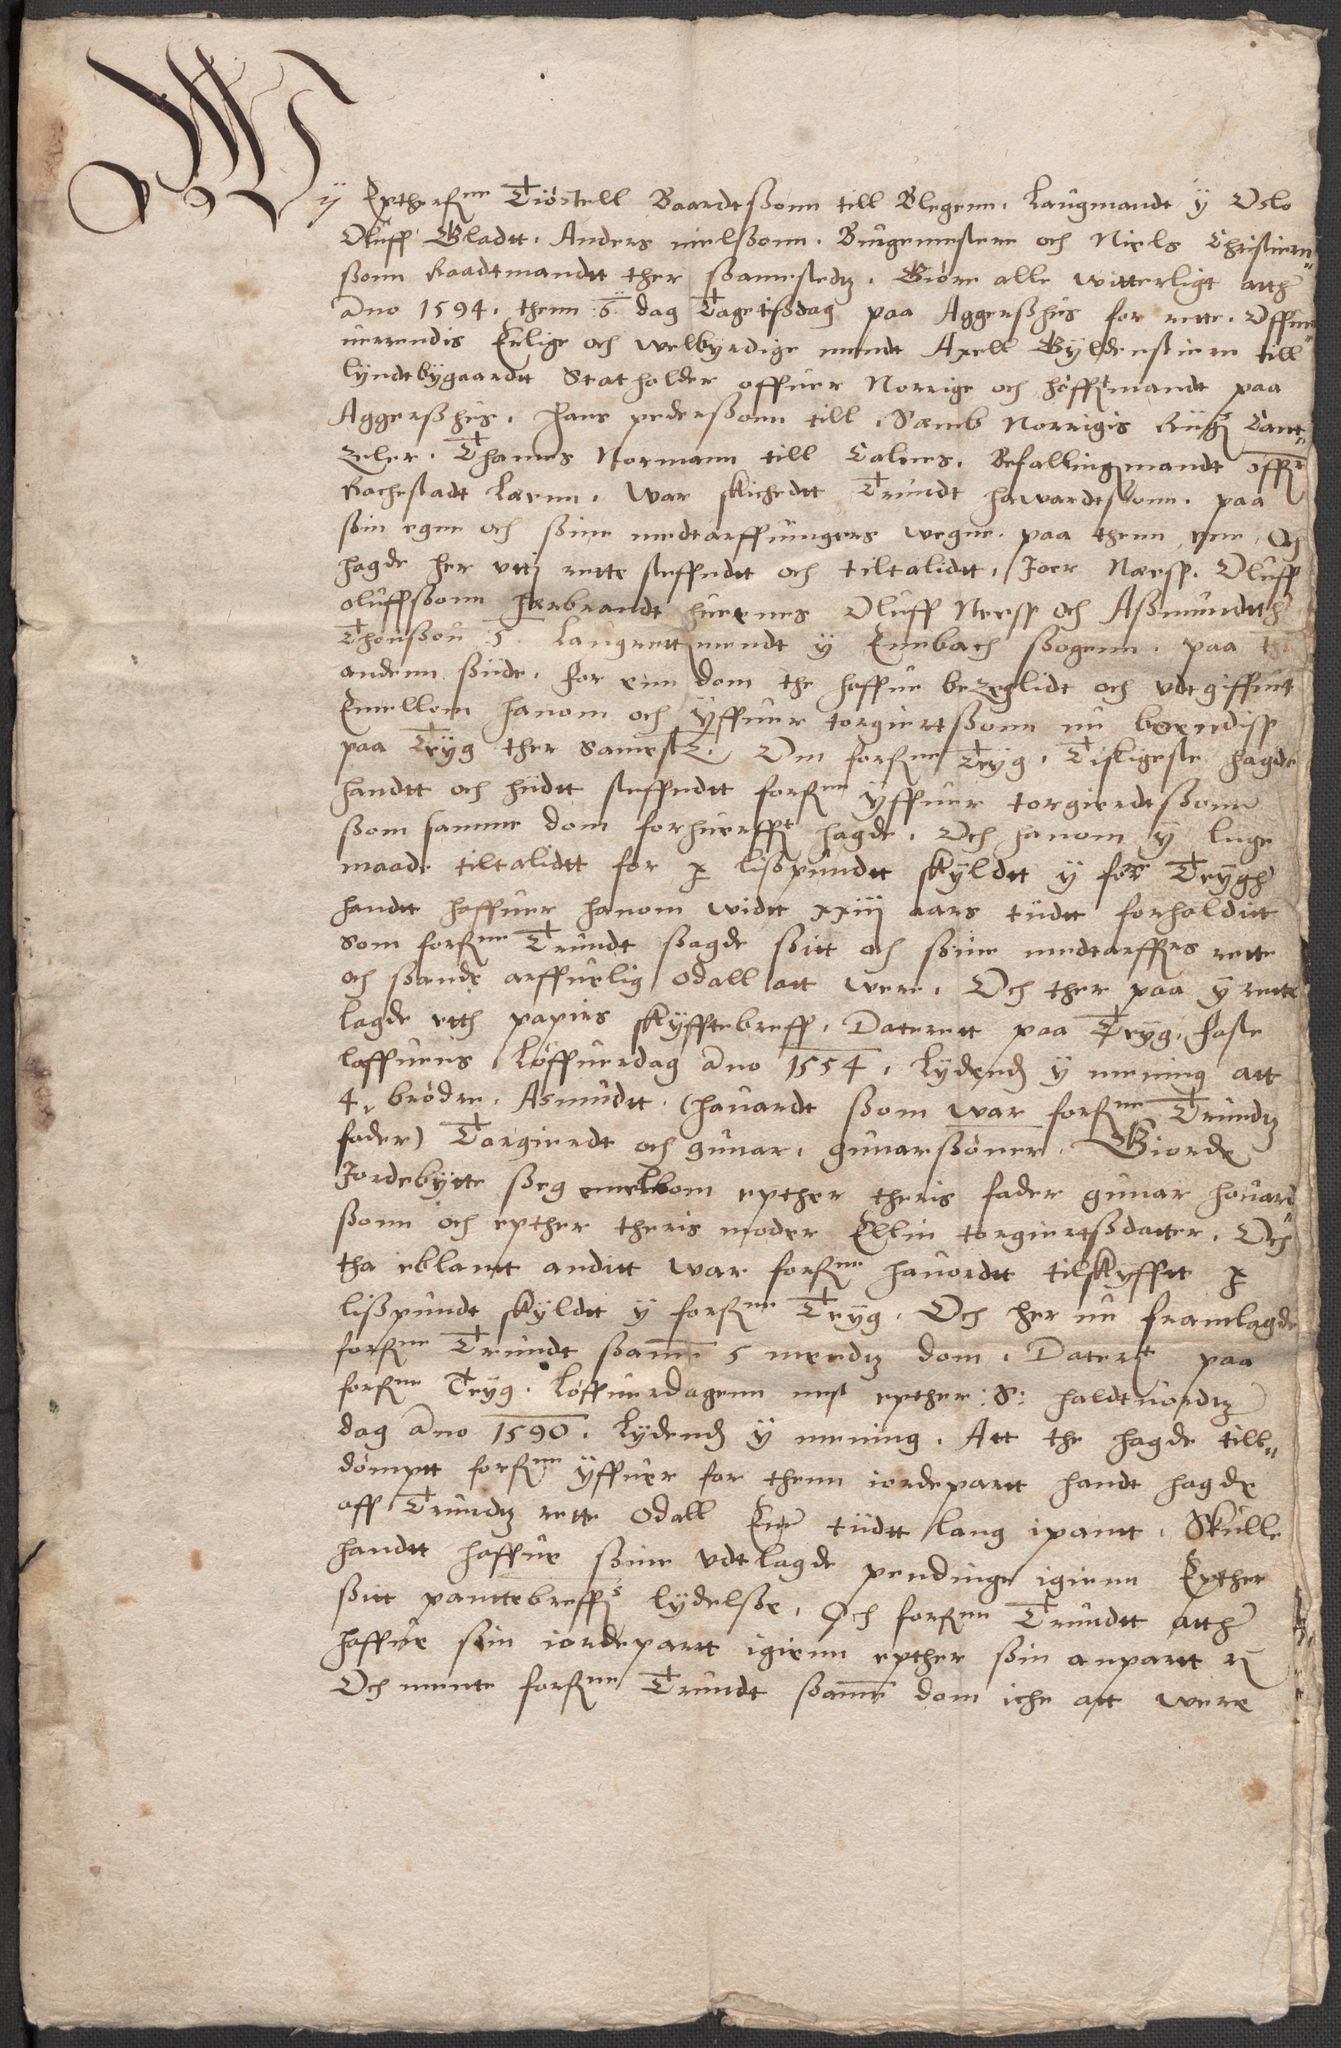 Wy Eptherschreffne Tiöstell Baardtssonn till Blegenn. Laugmandt y Oslo
Oluff Bladtt. Anders nielssonn. Burgemestere och Niels Christiern„
ssonn Raadtmandtt ther ssamestedtz. Giöre alle witterligt atth
Ano 1594. thenn 5 dag Tagetssdag paa Aggersshus for rette. Offuer
uerrendis Erlige och welbyrdige mendt Axell Gyldenstiern till
lyndtbygaardtt Statholder offuer Norrige och höffitzmandt paa
Aggersshus. Hans pederssonn till Sæmb Norrigis Rigis Cant„
zeler. Thames Normann till Calnes. Befallingzmandt offr
Rachestadt Læenn. War skichedtt Trundt hawardtssonn. paa
sin egne och ssine medtarffuingers wegne. paa thenn ene, Och
hagde her vtij rette steffndt och tiltalidtt. Joer Næess. Oluff
oluffssonn Herbrandt huernes Oluff Neess och Assmundth
Thordssön 5 Laugrettzmendt y Enebach ssogenn. paa th
andenn ssiide. for enn dom the haffue bezeglidt och vdtgiffuit
Emellom hanom och Yffuer torgiertssonn nu boendiss
paa Tryg ther samestz. Om forschreffne Tryg. Disligeste hagde
handtt och hiidtt steffndtt forschreffne yffuer torgierdtssonn
ssom samme dom forhuerffuit hagde. Och hanom y luge
maade tiltalidtt for ꝑ lisspundtt skyldtt y for Trygh
handtt haffuer hanom widtt xxiij aars tiidtt forholditt
som forschreffne Trundt ssagde ssitt och ssine medtarffuingers rette
och ssande arffuelig odall att were. Och ther paa y rette
lagde etth papirs skyfftebreff. Daterett paa Tryg. faste
laffuens Löffuerdag Ano 1554. Lydendis y mening att
4. brödre. Asmundtt. (hauardt ssom war forschreffne Trundtz
fader) Torgierdt och gunar. gunarssöner. Giorde
Jordebytte sseg emellom epther theris fader gunar houard
ssonn och epther theris moder Ellin torgiertssdatter. Och
tha iblantt anditt war forschreffne hauordtt tilskyfftt ꝑ
lisspundt skyldtt y forschreffne Tryg. Och her nu framlagde
forschreffne Trundt ssame 5 mendtz dom. Daterit paa
forschreffne Tryg. Löffuerdagenn nest epther :S: haldtuordtz
dag Ano 1590. Lydendis y mening. Att the hagde till„
dömptt forschreffne yffuer for thenn iordepartt handt hagde
aff Trundtz rette Odall Enn tiidtt lang ipantt. Skulle
handtt haffue ssine vdtlagde pendinge igienn Epther
ssitt panttebreffs lydelsse. Och forschreffne Trundtt atth
haffue ssin iordepartt igienn epther ssin anpartt rc
Och mente forschreffne Trundt ssame dom iche att were